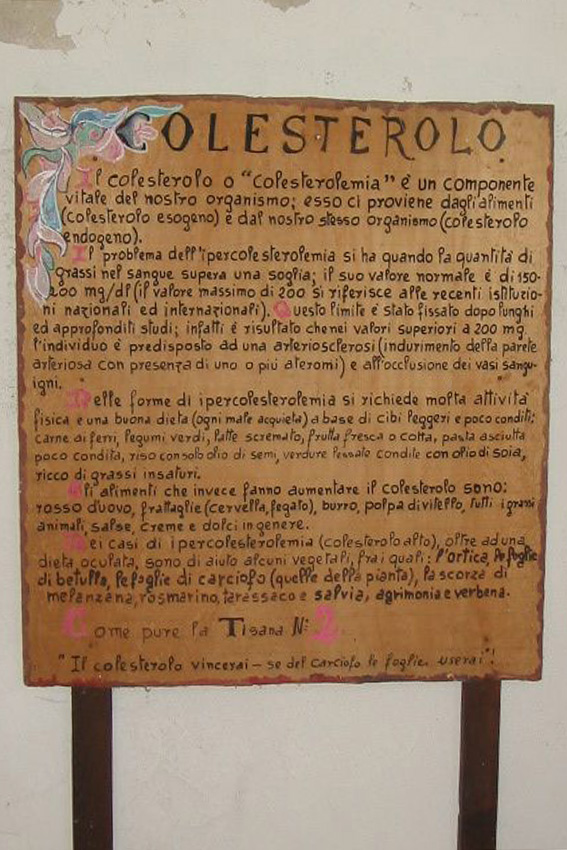 COLESTEROLO
Il colesterolo o "Colesterolemia" è un componente
vitale del nostro organismo; esso ci proviene dagli alimenti
(colesterolo esogeno) e dal nostro stesso organismo (colesterolo
endogeno).
Il problema dell'ipercolesterolemia si ha quando la quantità di
grassi nel sangue supera una soglia; il suo valore normale è di 150-
200 mg/dl (il valore massimo di 200 si riferisce alle recenti istituzio-
ni nazionali ed internazionali). Questo limite è stato fissato dopo lunghi
ed approfonditi studi; infatti è risultato che nei valori superiori a 200 mg.
l'individuo è predisposto ad una arteriosclerosi (indurimento della parete
arteriosa con presenza di uno o più ateromi) e all'occlusione dei vasi sangu-
igni.
Nelle forme di ipercolesterolemia si richiede molta attività
fisica e una buona dieta (ogni male acquieta) a base di cibi leggeri e poco conditi:
carne ai ferri, legumi verdi, latte scremato, frutta fresca o cotta, pasta asciutta
poco condita, riso con solo olio di semi, verdure lessate condite con olio di soia,
ricco di grassi insaturi.
Gli alimenti che invece fanno aumentare il colesterolo sono:
rosso d'uovo, frattaglie (cervella, fegato), burro, polpa di vitello, tutti i grassi
animali, salse, creme e dolci in genere.
Nei casi di ipercolesterolemia (colesterolo alto), oltre ad una
dieta oculata, sono di aiuto alcuni vegetali, fra i quali: l'ortica, le foglie
di betulla, le foglie di carciofo (quelle della pianta), la scorza di
melanzana, rosmarino, tarassaco e salvia, agrimonia e verbena.
Come pure la Tisana N: 2
"Il colesterolo vincerai - se del carciofo le foglie userai"!